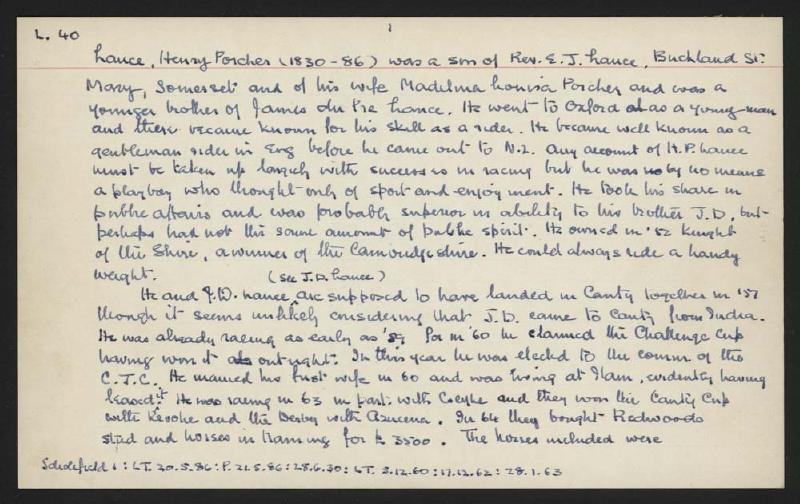 L. 40
Lance, Henry Porcher (1830-86) was a son of Rev. E. J. Lance, Buckland St.
Mary, Somerset and of his wife Madelina Louisa Porcher and was a
younger brother of James du Pre Lance. He went to Oxford as a young man
and there became known for his skill as a rider. He became well known as a
gentleman rider in Eng before he came out to N.Z. Any account of H.P. Lance
must be taken up largely with successes in racing but he was by no means
a playboy who thought only of sport and enjoyment. He took his share in
public affairs and was probably superior in ability to his brother J.D. but
perhaps had not the same amount of public spirit. He owned in '52 Knight
of the Shire, a winner of the Cambridgeshire. He could always ride a handy
weight. (see J.D. Lance)
He and J.D. Lance are supposed to have landed in Canty together in '57
though it seems unlikely considering that J.D. came to Canty from India.
He was already racing as early as '59 for in '60 he claimed the Challenge Cup
having won it outright. In this year he was elected to the comm. of the
C.J.C. He married his first wife in 60 and was living at Ilam, evidently having
leased it. He was racing in 63 in part. with and they won the Canty Cup
with and the Derby with Azucena. In 64 they bought Redwoods
stud and horses in training for £3500. The horses included were
Scholefield 1 : LT. 20.5.86 : P. 21.5.86 : 28.6.30 : LT. 3.12.60 : 17.12.62 : 28.1.63